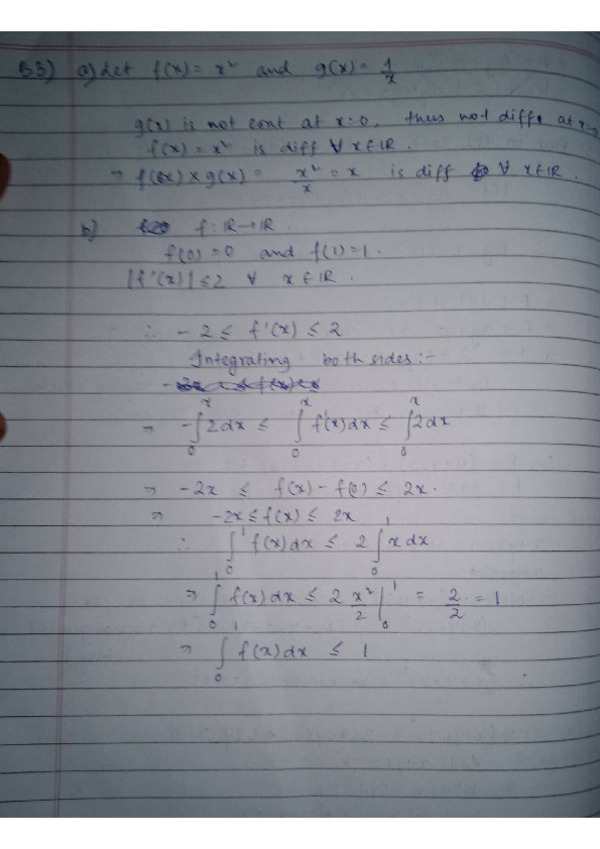 B3) a) Let f(x) = x² and g(x) = 1/x
g(x) is not cont at x=0, thus not diff at x=0
f(x) = x² is diff ∀ x∈ℝ.
⇒ f(x) × g(x) = x²/x = x is diff ∀ x∈ℝ.
b) f: ℝ→ℝ
f(0)=0 and f(1)=1.
|f'(x)| ≤ 2 ∀ x∈ℝ.
∴ -2 ≤ f'(x) ≤ 2
Integrating both sides:-
⇒ -∫₀ˣ 2dx ≤ ∫₀ˣ f'(x)dx ≤ ∫₀ˣ 2dx
⇒ -2x ≤ f(x) - f(0) ≤ 2x.
⇒ -2x ≤ f(x) ≤ 2x
∴ ∫₀¹ f(x)dx ≤ 2 ∫₀¹ x dx
⇒ ∫₀¹ f(x)dx ≤ 2 x²/2 |₀¹ = 2/2 = 1
⇒ ∫₀¹ f(x)dx ≤ 1